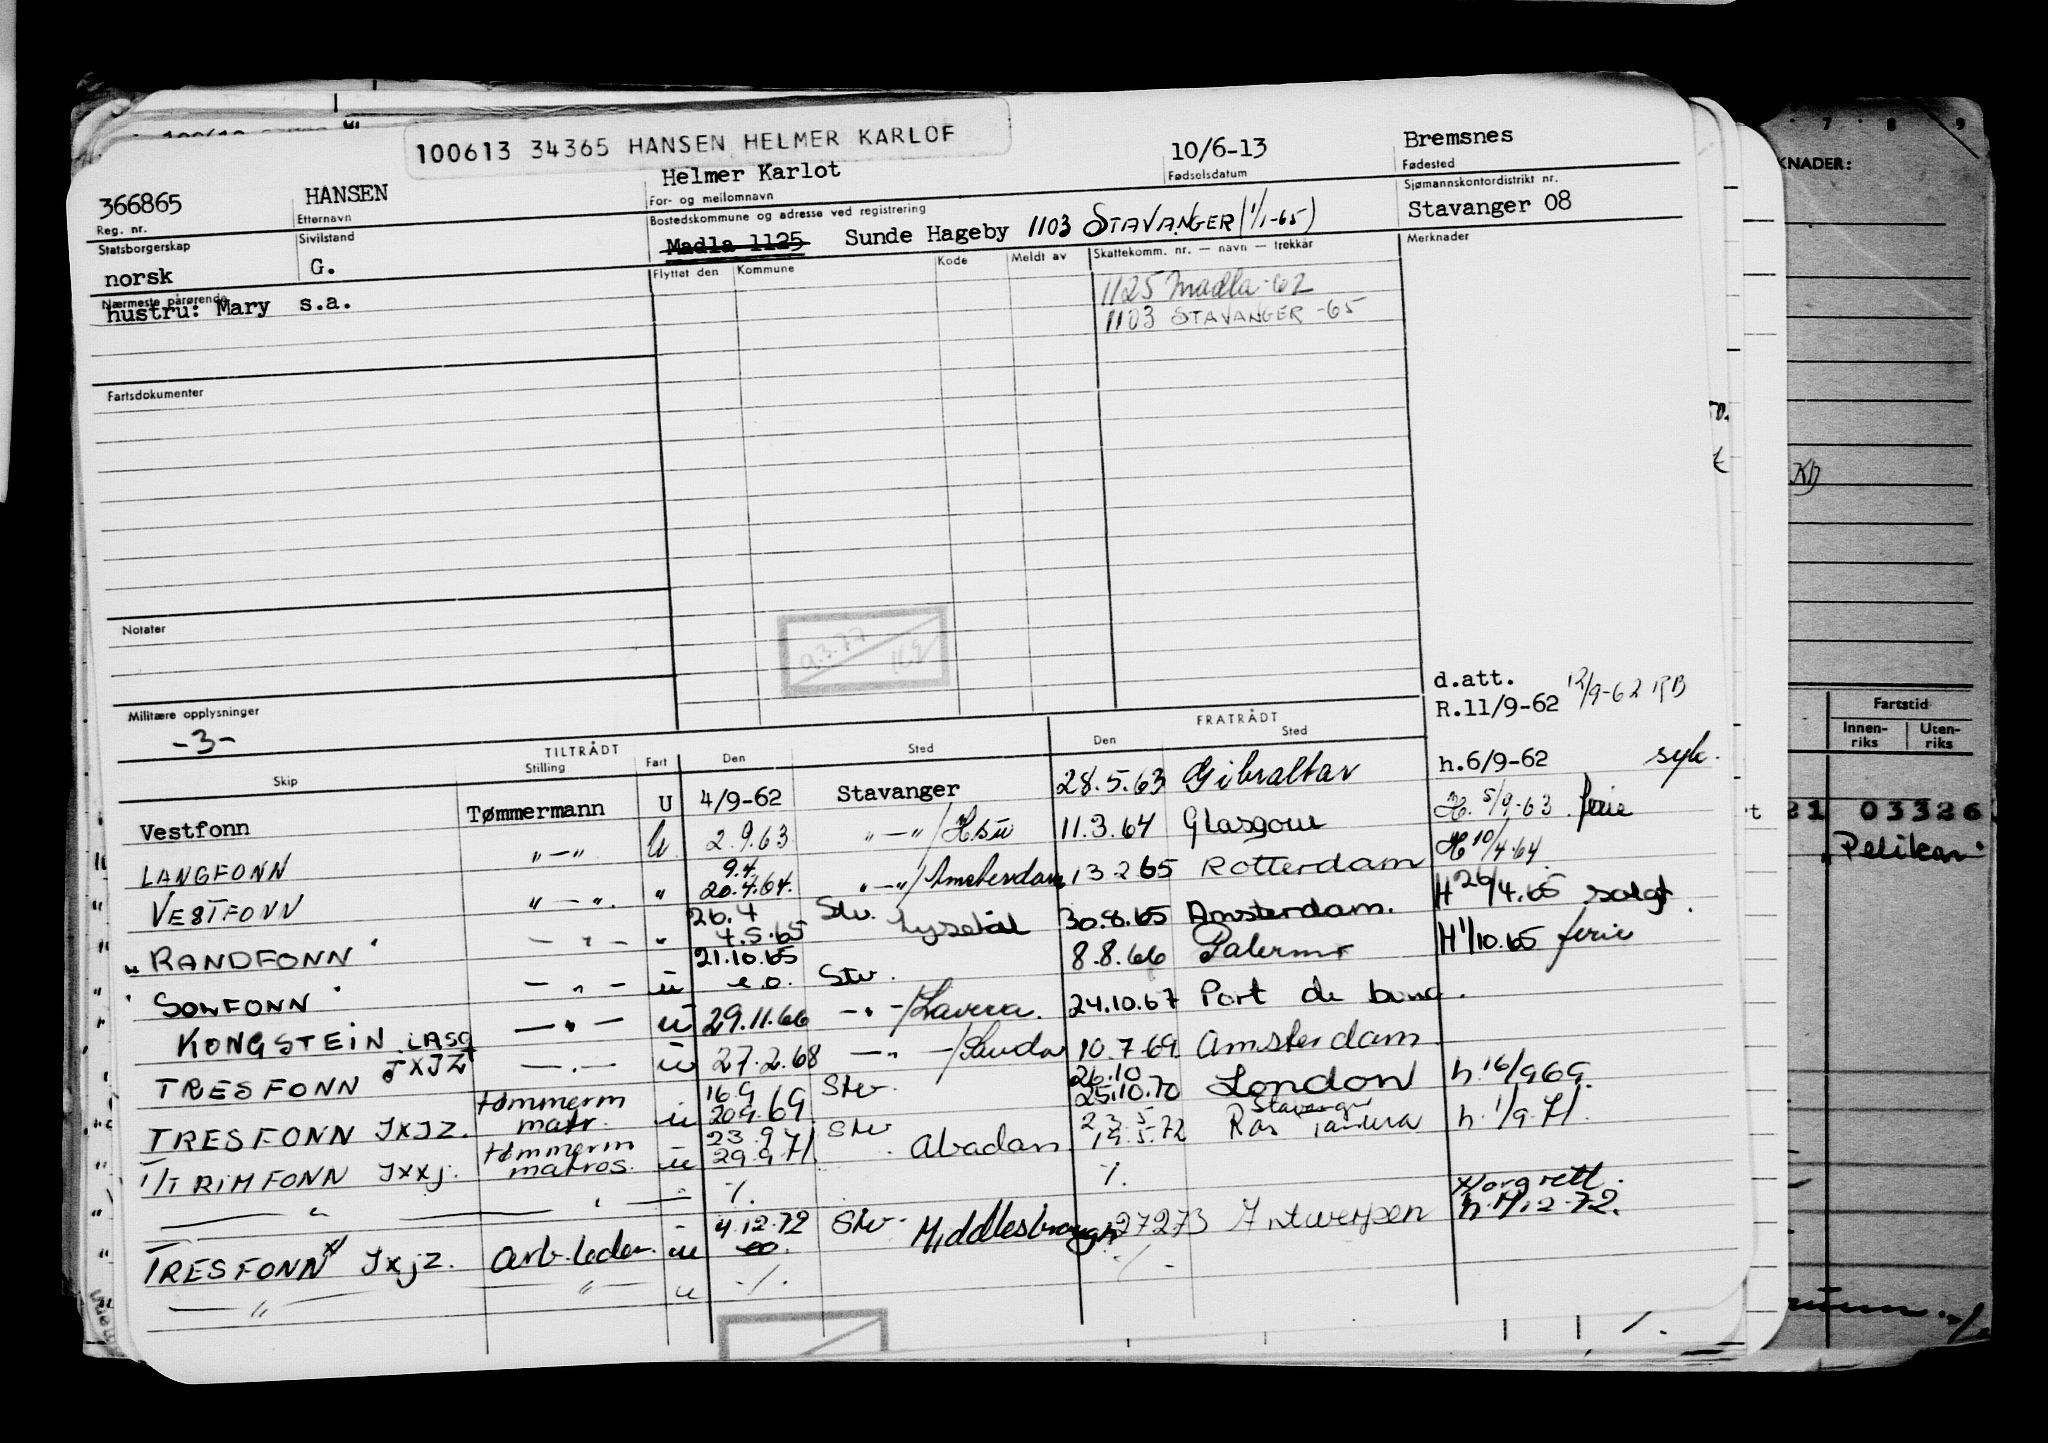 100613 34365 HANSEN HELMER KARLOF
366865 HANSEN Helmer Karlot 10/6-13 Bremsnes
Reg. nr. Etternavn For- og mellomnavn Fødselsdatum Fødested
Statsborgerskap Sivilstand Bostedskommune og adresse ved registrering Sjømannskontordistrikt nr.
norsk G. Madla 1125 Sunde Hageby 1103 STAVANGER (1/1-65) Stavanger 08
Nærmeste pårørende Flyttet den Kommune Kode Meldt av Skattekomm. nr. — navn — trekkår Merknader
hustru: Mary s.a. 1125 Madla -62
1103 STAVANGER -65
Fartsdokumenter
Notater
9.3.77
Militære opplysninger
-3-
d.att.
R.11/9-62 12/9-62 RB
TILTRÅDT FRATRÅDT
Skip Stilling Fart Den Sted Den Sted
Vestfonn Tømmermann U 4/9-62 Stavanger 28.5.63 Gibraltar h.6/9-62 syk.
LANGFONN "—" U 2.9.63 "—"/ 11.3.64 Glasgow H. 5/9-63 ferie
VESTFONN "—" " 9.4 20.4.64. "—"/Amsterdam 13 2 65 Rotterdam H 10/4.64
" RANDFONN — " — " 26.4 4.5.65 Stv. Lysekil 30.8.65 Amsterdam. H 26/4.65 solgt
" SOLFONN — " — u 21.10.65 e.o. Stv. 8.8.66 Palermo H 1/10.65 ferie
KONGSTEIN LASQ — " — u 29.11.66 — " —/Lavera. 24.10.67 Port de bouc.
TRESFONN JXJZ — . — u 27.2.68 — " —/Sauda 10.7.69 Amsterdam
TRESFONN JXJZ. tømmerm matr. u 16.9 20.9.69 Stv 26.10 25.10.70 London h.16/9 69.
T/T RIMFONN JXXJ. tømmerm matros. u 23.9 29.9.71. Stv Abadan 23.5 19.5.72 Stavanger Ras Tanura h.1/9.71.
— " — " — " ·/. ·/.
TRESFONN x/ JXJZ. Arb.leder. u 4.12.72 eo. Stv. Middlesbrough 27 2 73 Antwerpen x/org rett. h.4/12-72.
— " — " — u ·/. ·/.
KNADER:
Fartstid
Innenriks Utenriks
21 03326
Pelikan